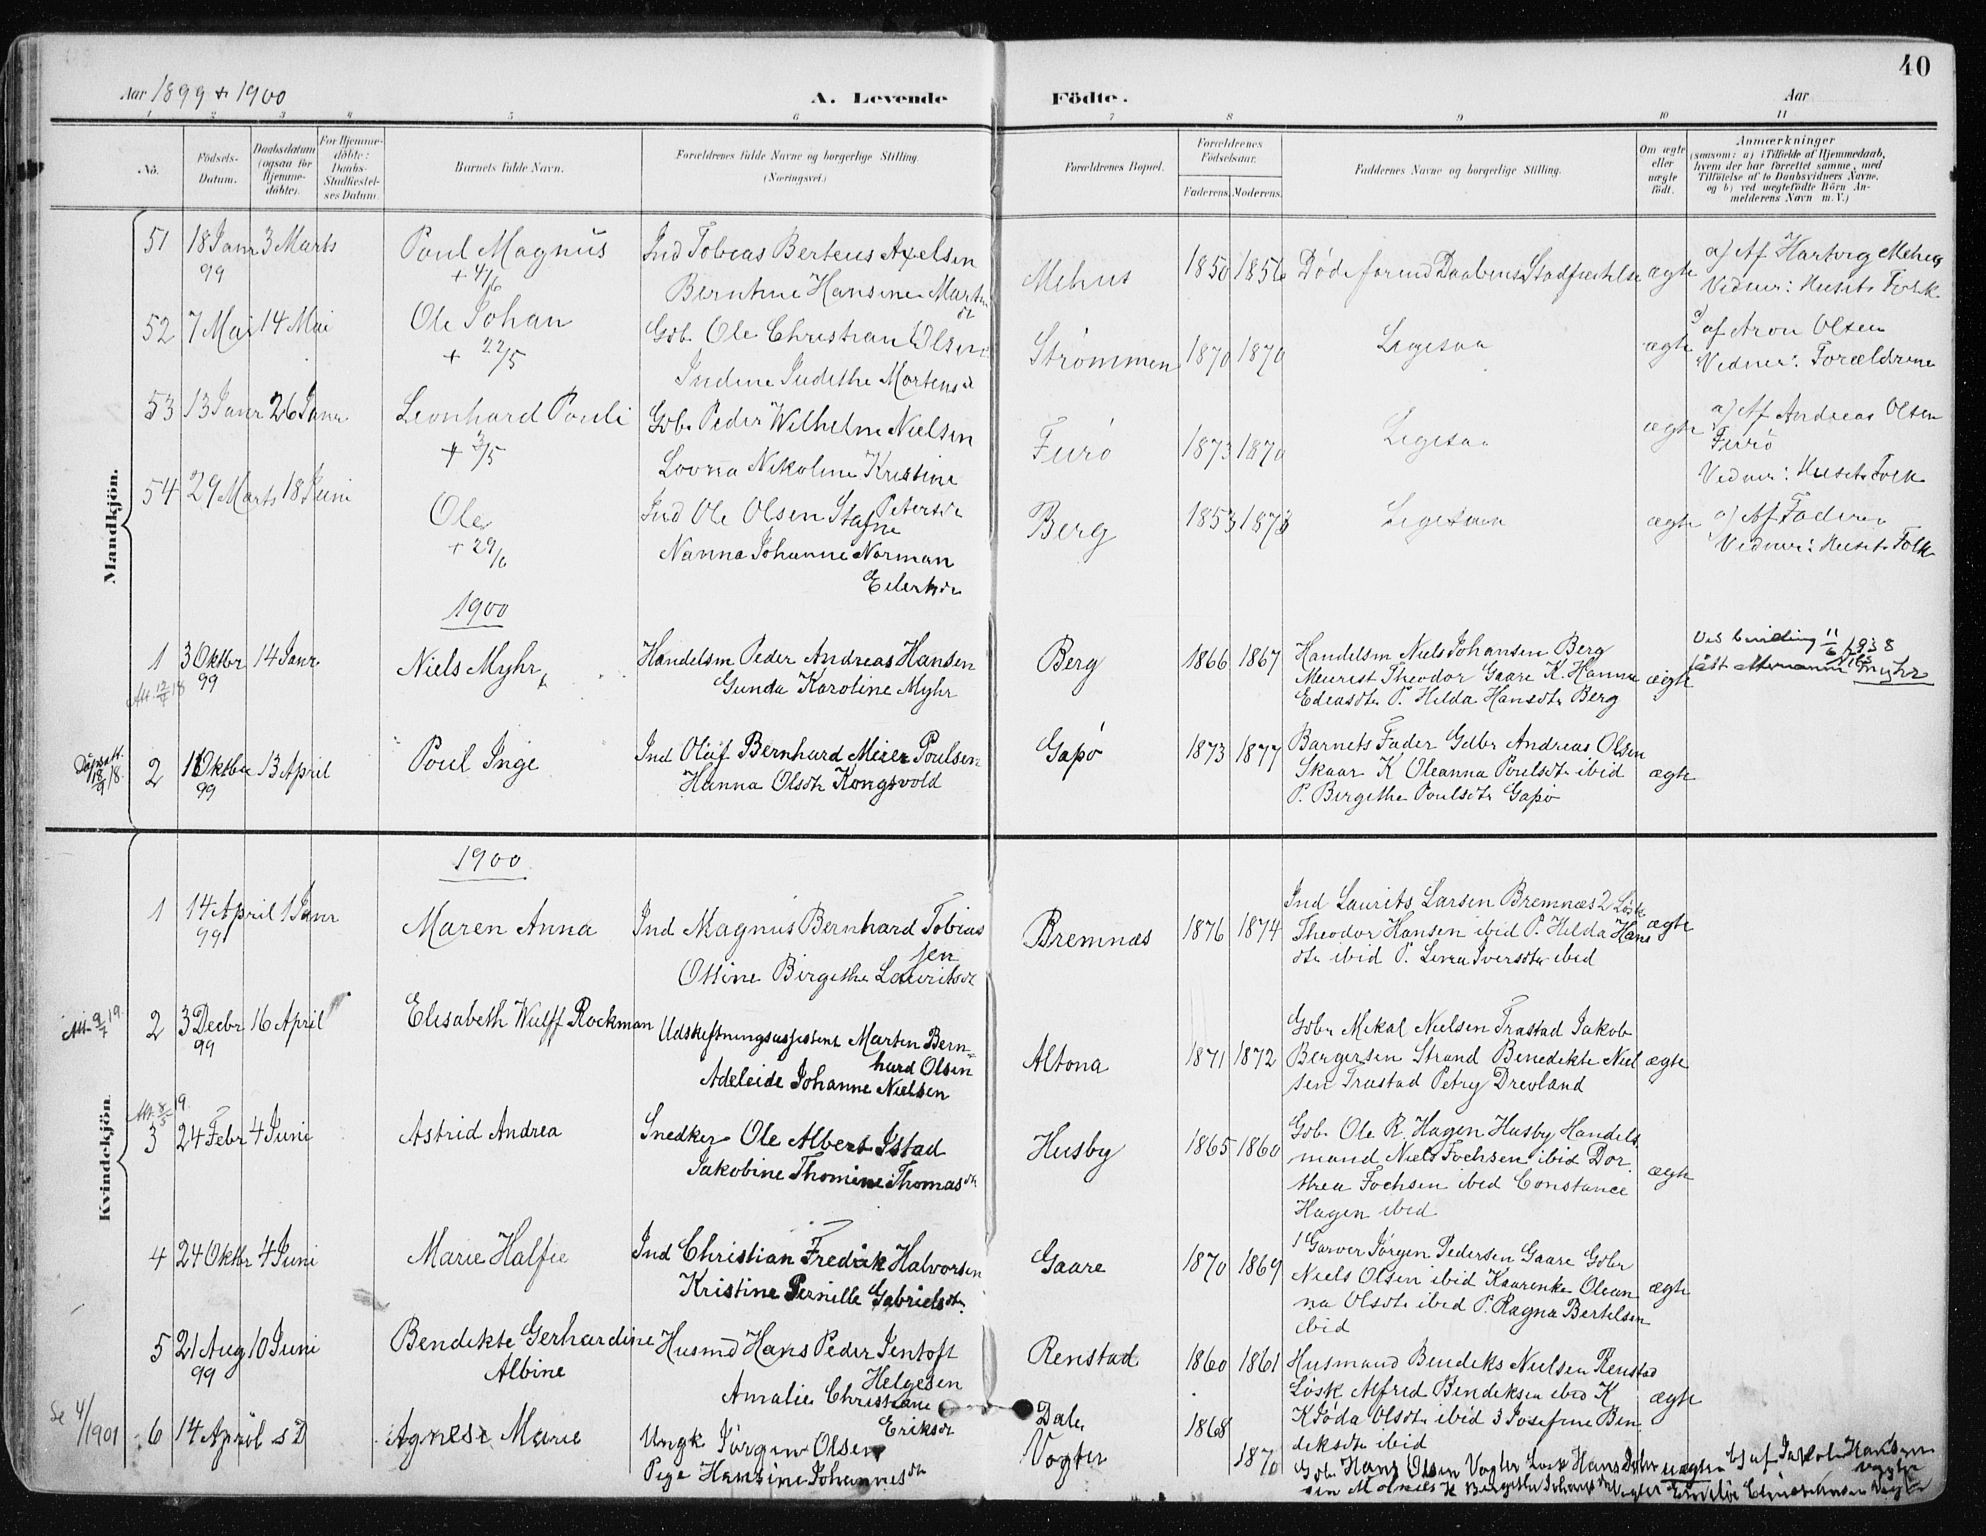 40
Aar 1899 & 1900 A. Levende Födte. Aar
1 2 3 4 5 6 7 8 9 10 11
No. Födsels-Datum. Daabsdatum (ogsaa for Hjemme-döbte). For Hjemme-döbte: Daabs-Stadfæstel-ses Datum. Barnets fulde Navn. Forældrenes fulde Navne og borgerlige Stilling. (Næringsvei.) Forældrenes Bopæl. Forældrenes Fødselsaar. Faderens. Moderens. Faddernes Navne og borgerlige Stilling. Om ægte eller uægte födt. Anmærkninger (saasom: a) i Tilfælde af Hjemmedaab, hvem der har forrettet samme, med Tilföielse af to Daabsvidners Navne, og b) ved uægtefödte Börn An-melderens Navn m. V.)
Mandkjön.
51 18 Janr 3 Marts Poul Magnus Ind Tobias Berteus Axelsen Mehus 1850 1856 Døde forend Daabens Stadfæstelse ægte a) Af Hartvig Mehus
99 + 4/6 Berntine Hansine Martin dt Vidner: Husets Folk
52 7 Mai 14 Mai Ole Johan Gbr. Ole Christian Olsen Strømmen 1870 1870 Ligesaa ægte a) af Aron Olsen
+ 22/5 Indine Judithe Mortensd Vidner: Forældrene
53 13 Janr 26 Janr Leonhard Pouli Gbr. Peder Wilhelm Nielsen Furø 1873 1870 Ligesaa ægte a) Af Andreas Olsen
+ 3/5 Lovna Nikoline Kristine Petersdr Furö
Vidner: Husets Folk
54 29 Marts 18 Juni Ole Ind Ole Olsen Stafne Berg 1853 1873 Ligesaa ægte a) Af Faderen
+ 29/6 Nanna Johanne Norman Vidner: Husets Folk
Eilertsdr
1900
1 3 Oktbr 14 Janr Niels Myhr Handelsm Peder Andreas Hansen Berg 1866 1867 Handelsm Niels Johansen Berg
99 Gunda Karoline Myhr Theodor Gaare K. Hanna ægte
P. Hilda Hansdtr Berg
Ved 11/6 1938 Myhr
2 11 Oktbr 13 April Poul Inge Ind Oluf Bernhard Meier Poulsen Gapø 1873 1877 Barnets Fader Gdbr Andreas Olsen
99 Hanna Olsdtr Kongsvold Skaar K Oleanna Poulsdtr ibid ægte
P. Bergithe Poulsdtr Gapø
Kvindekjön.
1900
1 14 April 1 Janr Maren Anna Ind Magnus Bernhard Tobias Bremnæs 1876 1874 Ind Laurits Larsen Bremnæs 2 Løsk
99 sen Theodor Hansen ibid P. Hilda Hans ægte
Ottine Birgithe Lauritsdt dtr ibid P. Iversdtr ibid
Att. 9/7 19. 2 3 Decbr 16 April Elisabeth Wulff Rockman Udskiftningsassistent Marten Bern- Altona 1871 1872 Gbr Mikal Nielsen Trastad Jakob
99 hard Olsen Bergersen Strand Benedikte Niel ægte
Adeleide Johanne Nielsen sen Trastad Petry Drevland
3 24 Febr 4 Juni Astrid Andrea Snedker Ole Albert Istad Husby 1865 1860 Gbr. Ole R. Hagen Husby Handels
Jakobine Thomine Thomasdtr mand Niels Fochsen ibid Dor- ægte
thea Fochsen ibid Constance
Hagen ibid
4 24 Oktbr 4 Juni Marie Halfie Ind Christian Fredrik Halvorsen Gaare 1870 1869 Garver Jørgen Pedersen Gaare Gbr
Kristine Pernille Gabrielsdtr. Niels Olsen ibid Kaarenke Olean ægte
na Olsdtr ibid P. Ragna Bertelsen
ibid
5 21 Aug 10 Juni Bendikte Gerhardine Husmd Hans Peder Jentoft Renstad 1860 1861 Husmand Bendiks Nielsen Renstad
99 Albine Helgesen Løsk Alfred Bendiksen ibid K ægte
Amalie Christiane Olsdtr ibid 3 Josefine Ben
Eriksdr diksdtr ibid
Se 4/1901 6 14 April s D Agnes Marie Ungk Jørgen Olsen Dale 1868 Gbr Hans Olsen Vogter uægte af Jakob Hansen
Pige Hansine Johannesdtr Vogter 1870